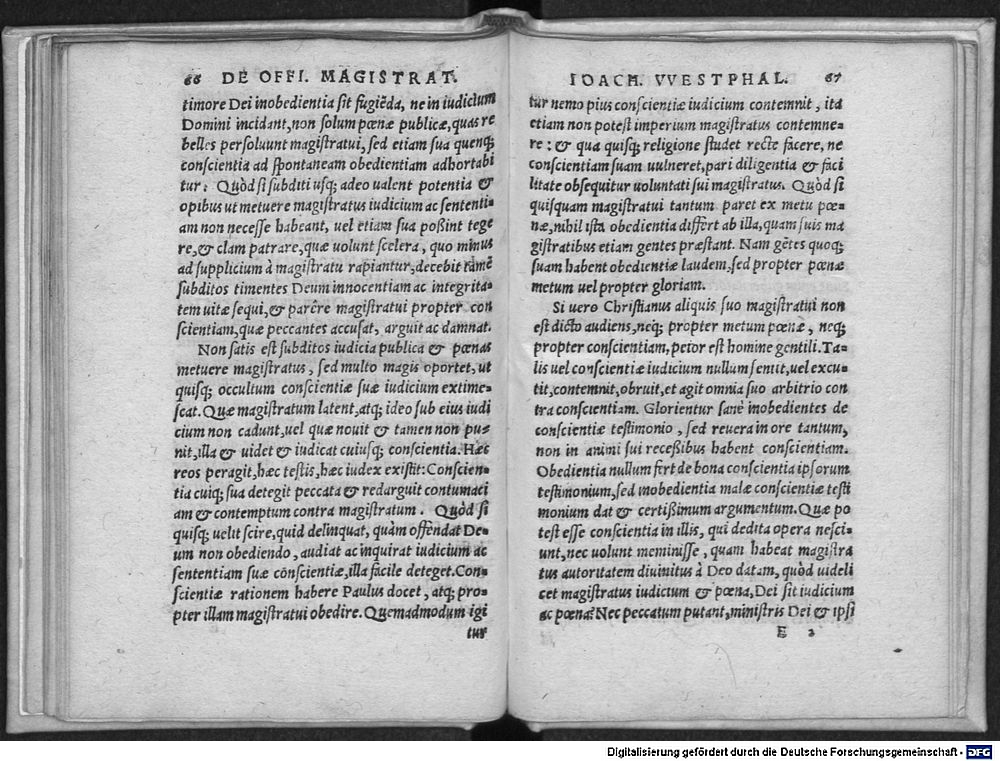 66 DE OFFI. MAGISTRAT.
timore Dei inobedientia sit fugiẽda, ne in iudicium
Domini incidant, non solum pœnæ publicæ, quas re
belles persoluunt magistratui, sed etiam sua quenq;
conscientia ad spontaneam obedientiam adhortabi
tur. Quòd si subditi usq; adeo ualent potentia &
opibus ut metuere magistratus iudicium ac sententi-
am non necesse habeant, uel etiam sua poßint tege
re, & clam patrare, quæ uolunt scelera, quo minus
ad supplicium à magistratu rapiantur, decebit tamẽ
subditos timentes Deum innocentiam ac integrita-
tem uitæ sequi, & parêre magistratui propter con
scientiam, quæ peccantes accusat, arguit ac damnat.
Non satis est subditos iudicia publica & pœnas
metuere magistratus, sed multo magis oportet, ut
quisq; occultum conscientiæ suæ iudicium extime-
scat. Quæ magistratum latent, atq; ideo sub eius iudi
cium non cadunt, uel quæ nouit & tamen non pu-
nit, illa & uidet & iudicat cuiusq; conscientia. Hæc
reos peragit, hæc testis, hæc iudex existit: Conscien-
tia cuiq; sua detegit peccata & redarguit contumaci
am & contemptum contra magistratum. Quòd si
quisq; uelit scire, quid delinquat, quàm offendat De-
um non obediendo, audiat ac inquirat iudicium ac
sententiam suæ cōnscientiæ, illa facile deteget. Con-
scientiæ rationem habere Paulus docet, atq; pro-
pter illam magistratui obedire. Quemadmodum igi
tur
IOACH. VVESTPHAL. 67
tur nemo pius conscientiæ iudicium contemnit, ita
etiam non potest imperium magistratus contemne-
re: & qua quisq; religione studet recte facere, ne
conscientiam suam uulneret, pari diligentia & faci
litate obsequitur uoluntati sui magistratus. Quòd si
quisquam magistratui tantum paret ex metu pœ-
næ, nihil ista obedientia differt ab illa, quam suis ma
gistratibus etiam gentes præstant. Nam gẽtes quoq;
suam habent obedientiæ laudem, sed propter pœnæ
metum uel propter gloriam.
Si uero Christianus aliquis suo magistratui non
est dicto audiens, neq; propter metum pœnæ, neq;
propter conscientiam, peior est homine gentili. Ta-
lis uel conscientiæ iudicium nullum sentit, uel excu-
tit, contemnit, obruit, et agit omnia suo arbitrio con
tra conscientiam. Glorientur sanè inobedientes de
conscientiæ testimonio, sed reuera in ore tantum,
non in animi sui receßibus habent conscientiam.
Obedientia nullum fert de bona conscientia ipsorum
testimonium, sed inobedientia malæ conscientiæ testi
monium dat & certißimum argumentum. Quæ po
test esse conscientia in illis, qui dedita opera nesci-
unt, nec uolunt meminisse, quam habeat magistra
tus autoritatem diuinitus à Deo datam, quòd uideli
cet magistratus iudicium & pœna, Dei sit iudicium
ac pœna? Nec peccatum putant, ministris Dei & ipsi
E 2
Digitalisierung gefördert durch die Deutsche Forschungsgemeinschaft - DFG